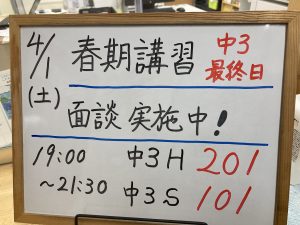 4/1 春期講習 中3
(土) 最終日
面談実施中!
19:00 中3H 201
~21:30 中3S 101